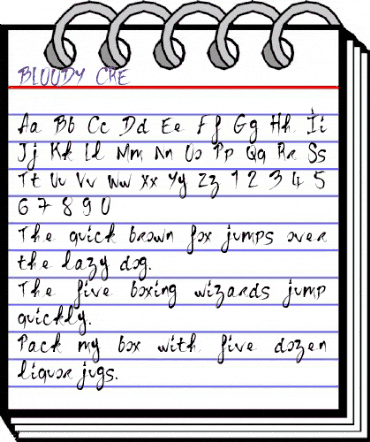 BLOODY CRE
Aa Bb Cc Dd Ee Ff Gg Hh Ii
Jj Kk Ll Mm Nn Oo Pp Qq Rr Ss
Tt Uu Vv Ww Xx Yy Zz 1 2 3 4 5
6 7 8 9 0
The quick brown fox jumps over
the lazy dog.
The five boxing wizards jump
quickly.
Pack my box with five dozen
liquor jugs.